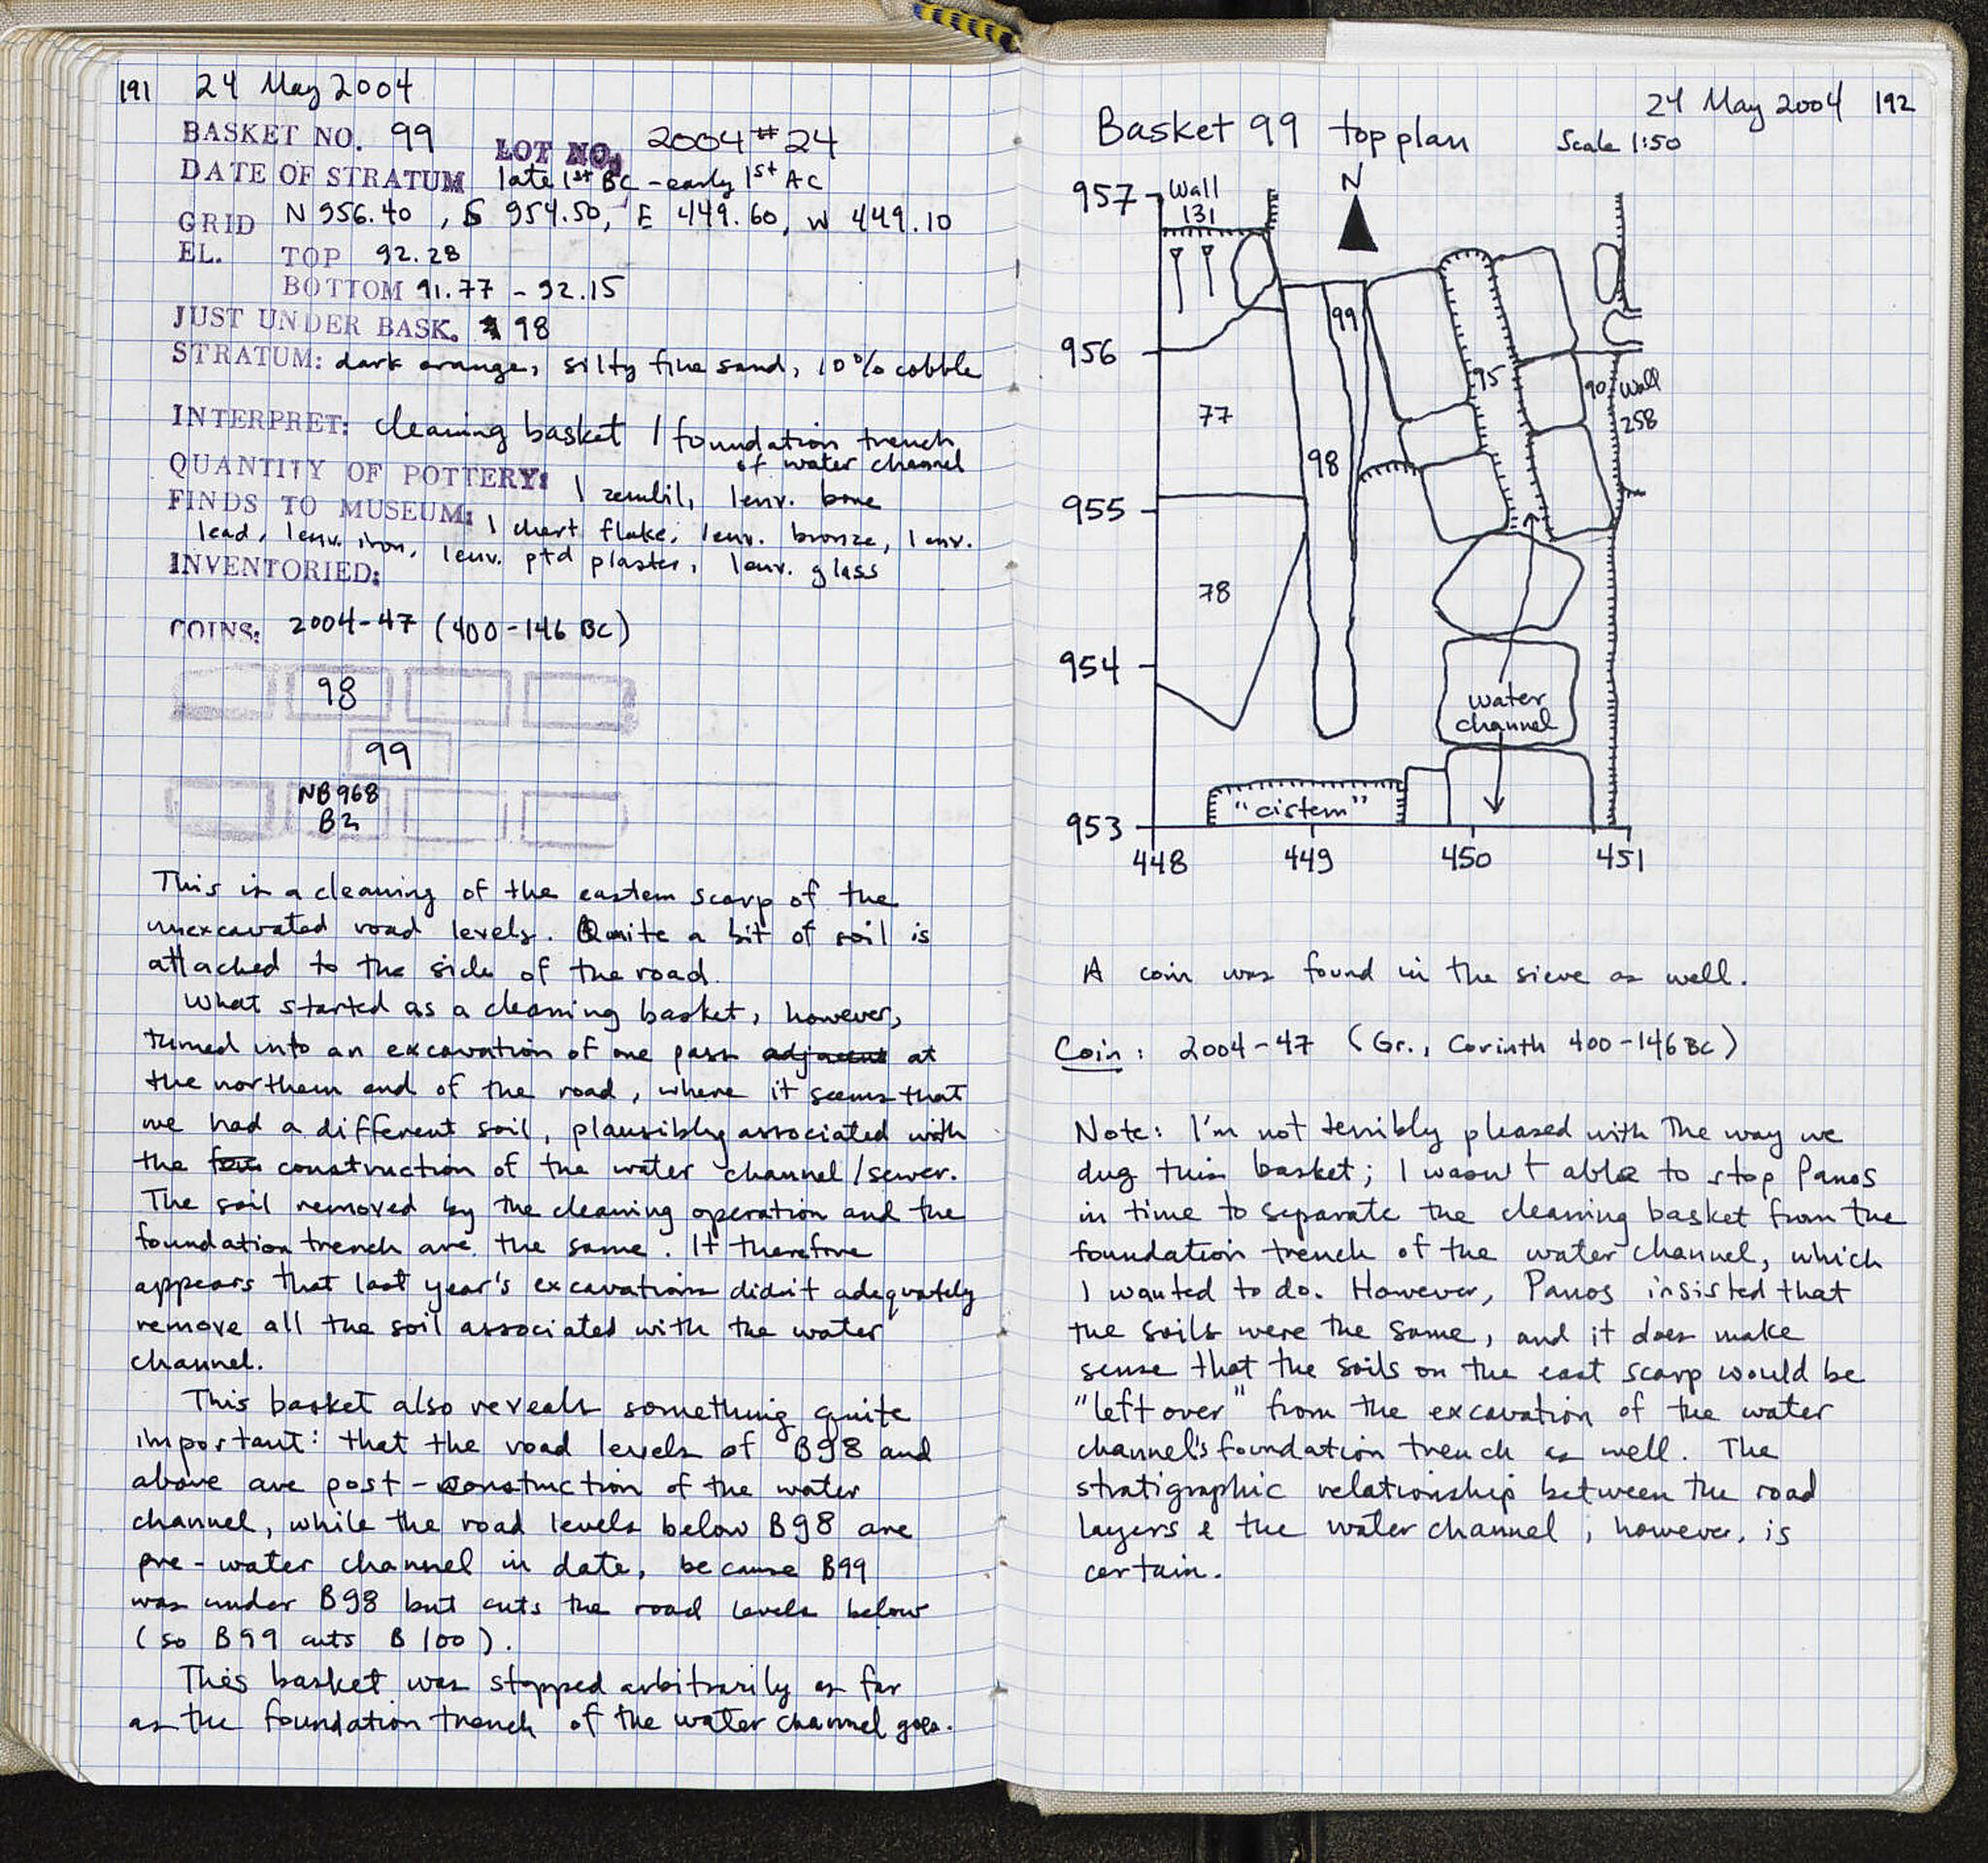 191 24 May 2004
BASKET NO. 99 LOT NO. 2004 # 24
DATE OF STRATUM late 1st BC - early 1st AC
GRID N 956.40, S 954.50, E 449.60, W 449.10
EL. TOP 92.28
BOTTOM 91.77 - 92.15
JUST UNDER BASK. 98
STRATUM: dark orange, silty fine sand, 10% cobble
INTERPRET: cleaning basket / foundation trench
of water channel
QUANTITY OF POTTERY: 1 zembil, 1env. bone
FINDS TO MUSEUM: 1 chert flake, 1env. bronze, 1 env.
lead, 1env. iron, 1env. ptd plaster, 1env. glass
INVENTORIED:
COINS: 2004-47 (400-146 BC)
98
99
NB968
B2
This is a cleaning of the eastern scarp of the
unexcavated road levels. Quite a bit of soil is
attached to the side of the road.
What started as a cleaning basket, however,
turned into an excavation of one pass adjacent at
the northern end of the road, where it seems that
we had a different soil, plausibly associated with
the construction of the water channel/sewer.
The soil removed by the cleaning operation and the
foundation trench are the same. It therefore
appears that last year's excavations didn't adequately
remove all the soil associated with the water
channel.
This basket also reveals something quite
important: that the road levels of B98 and
above are post-construction of the water
channel, while the road levels below B98 are
pre-water channel in date, because B99
was under B98 but cuts the road levels below
(so B99 cuts B100).
This basket was stopped arbitrarily as far
as the foundation trench of the water channel goes.
24 May 2004 192
Basket 99 top plan Scale 1:50
N
957
Wall
131
99
956
95
90
Wall
258
77
98
955
78
954
water
channel
"cistern"
953
448 449 450 451
A coin was found in the sieve as well.
Coin: 2004-47 (Gr., Corinth 400-146 BC)
Note: I'm not terribly pleased with the way we
dug this basket; I wasn't able to stop Panos
in time to separate the cleaning basket from the
foundation trench of the water channel, which
I wanted to do. However, Panos insisted that
the soils were the same, and it does make
sense that the soils on the east scarp would be
"left over" from the excavation of the water
channel's foundation trench as well. The
stratigraphic relationship between the road
layers & the water channel, however, is
certain.